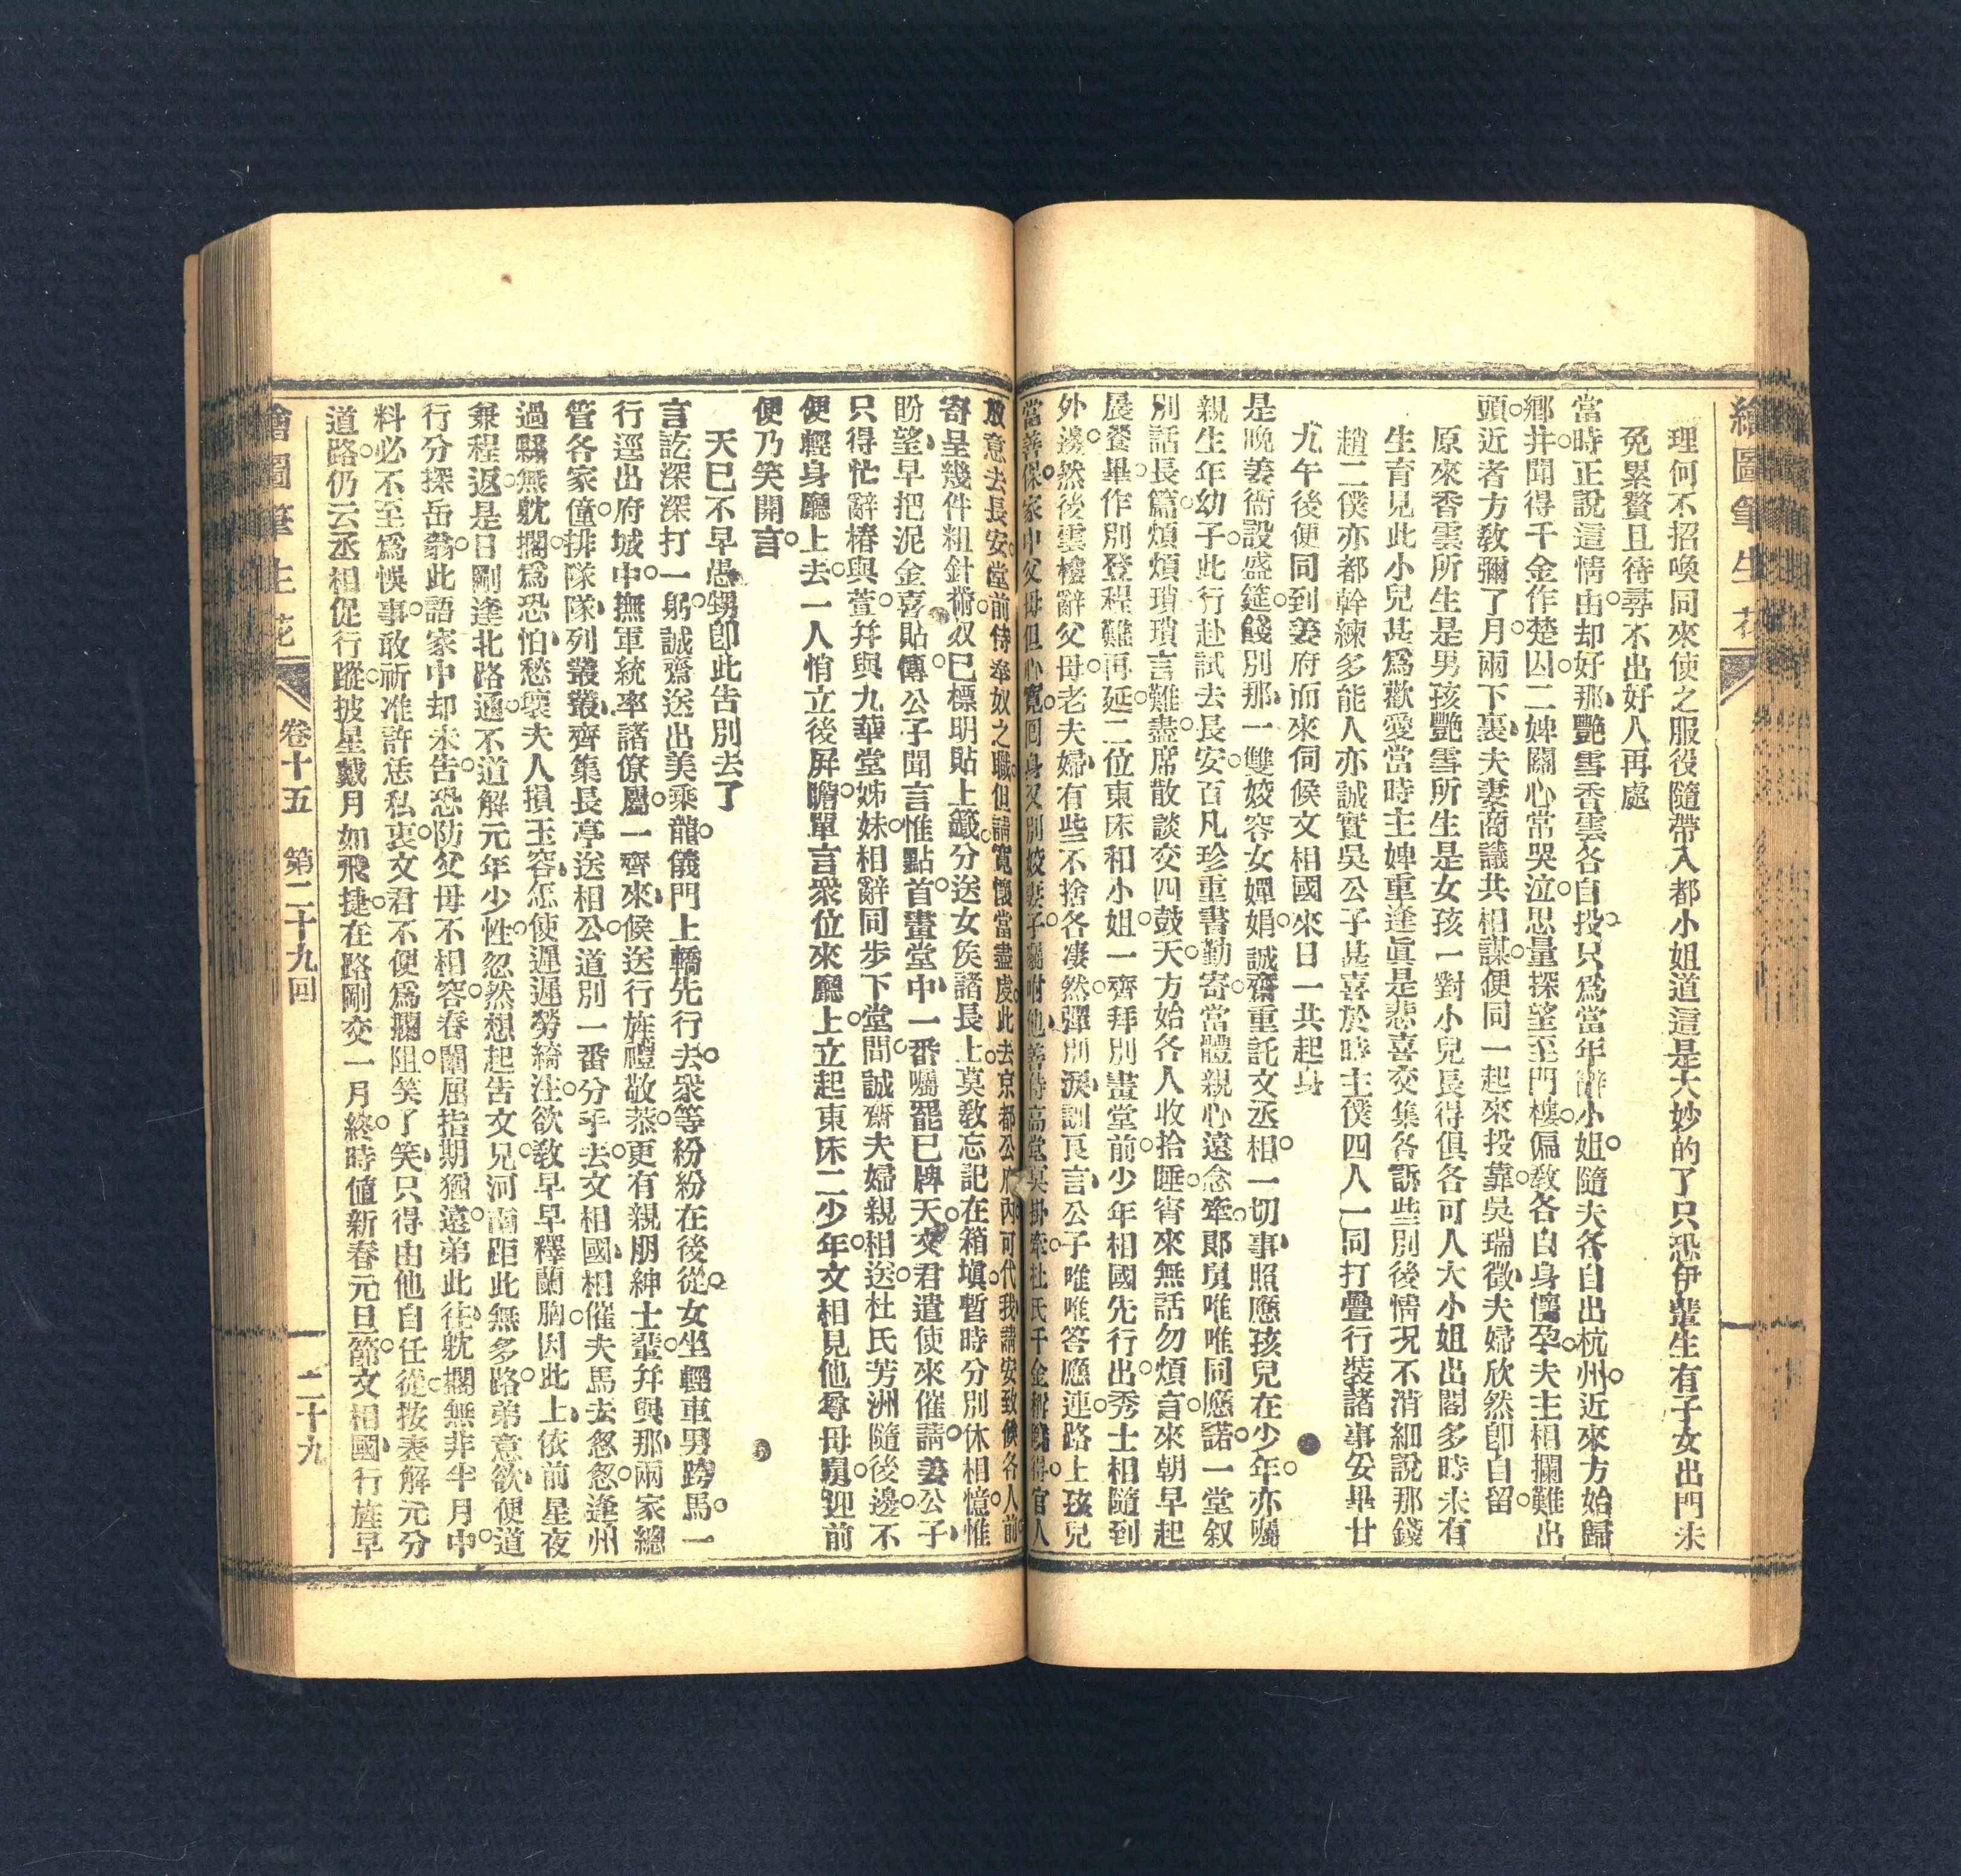 繪圖筆生花
理何不招喚同來使之服役隨帶入都小姐道這是大妙的了只恐伊輩生有子女出門未
免累贅且待尋不出好人再處
當時正說這情由却好那艷雪香雲各自投只爲當年辭小姐隨夫各自出杭州近來方始歸
鄉井聞得千金作楚囚二婢關心常哭泣思量探望至門樓偏敎各自身懷孕夫主相攔難出
頭近者方敎彌了月兩下裏夫妻商議共相謀便同一起來投靠吳瑞徵夫婦欣然卽自留
原來香雲所生是男孩艷雪所生是女孩一對小兒長得俱各可人大小姐出閣多時未有
生育見此小兒甚爲歡愛當時主婢重逢眞是悲喜交集各訴些別後情况不消細說那錢
趙二僕亦都幹練多能人亦誠實吳公子甚喜於時主僕四人一同打疊行裝諸事妥畢廿
九午後便同到姜府而來伺候文相國來日一共起身
是晚姜衙設盛筵餞別那一雙姣容女嬋娟誠齋重託文丞相一切事照應孩兒在少年亦囑
親生年幼子此行赴試去長安百凡珍重書勤寄當體親心遠念牽郎舅唯唯同應諾一堂叙
別話長篇煩煩瑣瑣言難盡席散談交四鼓天方始各人收拾睡宵來無話勿煩言來朝早起
晨餐畢作別登程難再延二位東床和小姐一齊拜別畫堂前少年相國先行出秀士相隨到
外邊然後雲樓辭父母老夫婦有些不捨各凄然彈別淚訓良言公子唯唯答應連路上孩兒
當善保家中父母但心寬回身又別姣妻子囑咐他善侍高堂莫掛牽杜氏千金稱 得官人
放意去長安堂前侍奉奴之職但請寬懷當盡虔此去京都公府內可代我請安致候各人前
寄呈幾件粗針黹奴已標明貼上籤分送女侯諸長上莫敎忘記在箱塡暫時分別休相憶惟
盼望早把泥金喜貼傳公子聞言惟點首畫堂中一番囑罷已牌天文君遣使來催請姜公子
只得忙辭椿與萱幷與九華堂姊妹相辭同步下堂間誠齋夫婦親相送杜氏芳洲隨後邊不
便輕身廳上去一人悄立後屏瞻單言衆位來廳上立起東床二少年文相見他尊母舅迎前
便乃笑開言
天已不早愚甥卽此告別去了
言訖深深打一躬誠齋送出美乘龍儀門上轎先行去衆等紛紛在後從女坐輕車男跨馬一
行逕出府城中撫軍統率諸僚屬一齊來候送行旌禮敬恭更有親朋紳士輩幷與那兩家總
管各家僮排隊隊列叢叢齊集長亭送相公道別一番分手去文相國相催夫馬去怱怱逢州
過縣無躭擱爲恐怕愁壞夫人損玉容怎使遲遲勞綺注欲敎早早釋蘭胸因此上依前星夜
兼程返是日剛逢北路通不道解元年少性忽然想起告文兄河南距此無多路弟意欲便道
行分探岳翁此語家中却未告恐防父母不相容春闈屈指期猶遠弟此往躭擱無非半月中
料必不至爲悞事敢祈准許恁私衷文君不便爲攔阻笑了笑只得由他自任從按表解元分
道路仍云丞相促行蹤披星戴月如飛捷在路剛交一月終時値新春元旦節文相國行旌早
繪圖筆生花
卷十五
第二十九回
二十九